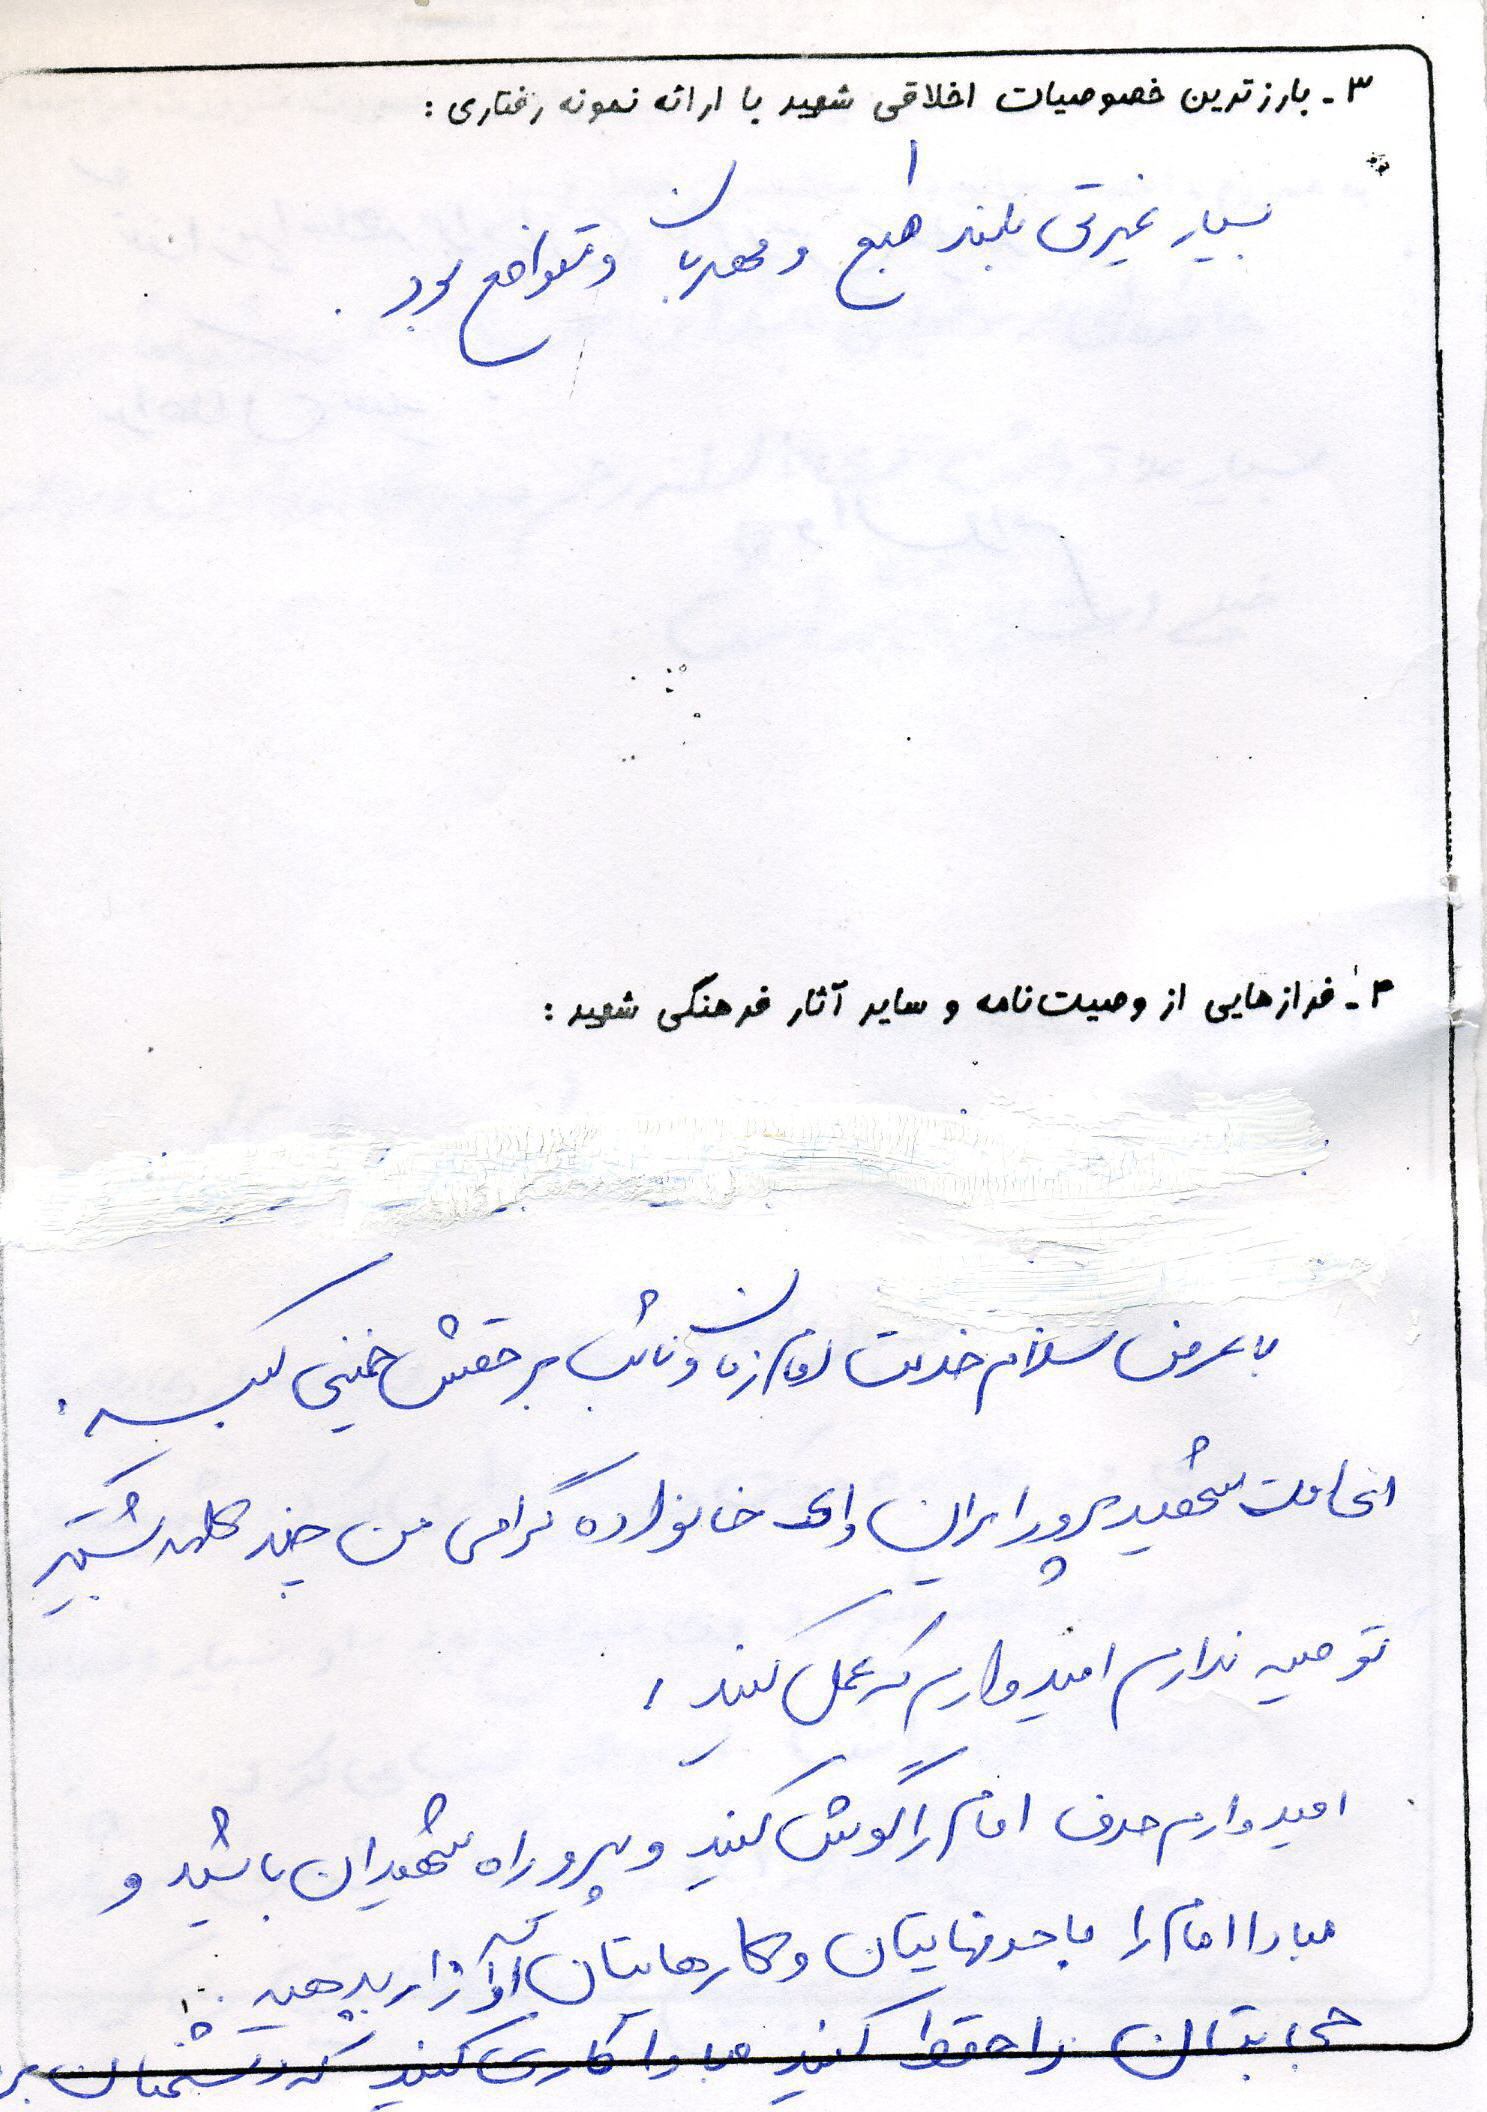 ۳- بارزترین خصوصیات اخلاقی شهید با ارائه نمونه رفتاری :
بسیار غیرتی بلند طبع و مهربان و متواضع بود .
۴- فرازهایی از وصیت‌نامه و سایر آثار فرهنگی شهید :
با عرض سلام خدمت امام زمان و نائب بر حقش خمینی کبیر .
ای امت شهید پرور ایران و ای خانواده گرامی من چند کلمه بیشتر
توصیه ندارم امیدوارم که عمل کنید .
امیدوارم حرف امام را گوش کنید و پیرو راه شهیدان باشید و
مبادا امام را با حرفهایتان و کارهایتان آزار بدهید .
حجابتان را حفظ کنید مبادا کاری کنید که دشمنان بر